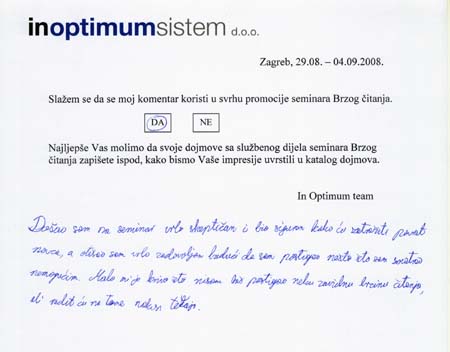 inoptimumsistem d.o.o.
Zagreb, 29.08. – 04.09.2008.
Slažem se da se moj komentar koristi u svrhu promocije seminara Brzog čitanja.
DA NE
Najljepše Vas molimo da svoje dojmove sa službenog dijela seminara Brzog
čitanja zapišete ispod, kako bismo Vaše impresije uvrstili u katalog dojmova.
In Optimum team
Došao sam na seminar vrlo skeptičan i bio siguran kako ću zatražiti povrat
novca, a otišao sam vrlo zadovoljan budući da sam postigao nešto što sam smatrao
nemogućim. Malo mi je krivo što nisam baš postigao neku zavidnu brzinu čitanja,
ali radit ću na tome nekim